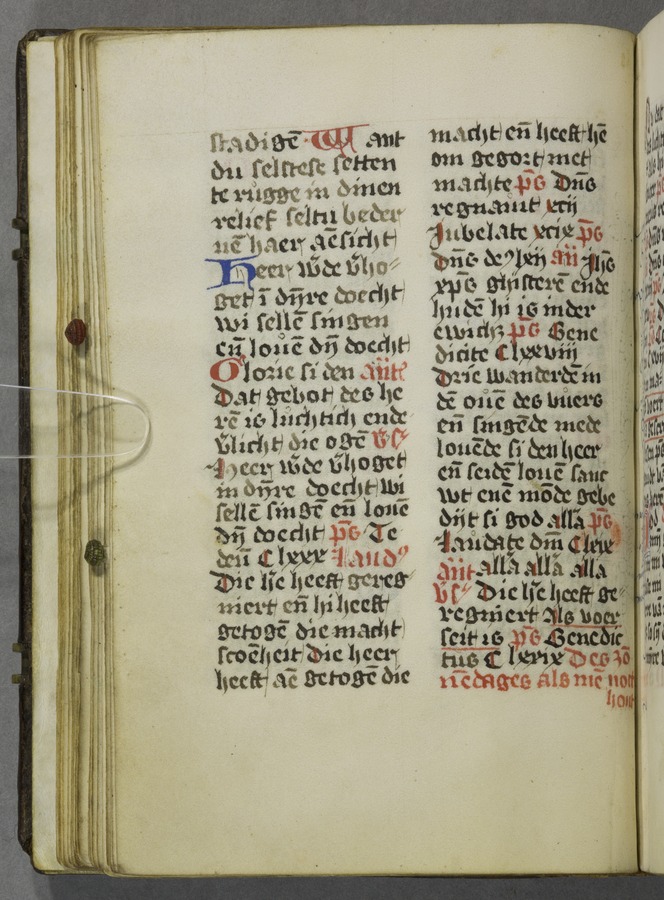 stadigē Want
du selstese setten
te rugge in dinen
relief seltu bedey
uē haer āesicht
Heer w̄de v̄ho-
get ī dȳre doecht
wi sellē singen
eñ louē dȳ doecht
Glorie si den añte
Dat gebot des he
rē is luchtich ende
v̄licht die ogē v̄s
Heer w̄de v̄hoget
in dȳre doecht wi
sellē singē eñ louē
dȳ doecht p̄s Te
deū Clxxx laudˀ
Die h̄e heeft gereg
niert eñ hi heeft
getogē die macht
scoēheit Die heer
heeft āe getogē die
macht eñ heeft hē
om gegort met
machte p̄s Dn̄s
regnauit xcij
Jubelate xcix p̄s
Dn̄s deˀ lxij añ Jh̄s
xp̄s ghisterē ende
hudē hi is inder
ewich p̄s Bene
dicite Clxxviij
Drie wanderdē in
dē ouē des vuers
eñ singēde mede
louēde si den heer
eñ seidē louē sanc
wt enē mōde gebe
dijt si god allā p̄s
Laudate dm̄ Clxix
añt allā allā allā
v̄s Die h̄e heeft ge-
regniert Als voer
seit is p̄s Benedic
tus Clxxix Des sō
nēdages als mē not
hout